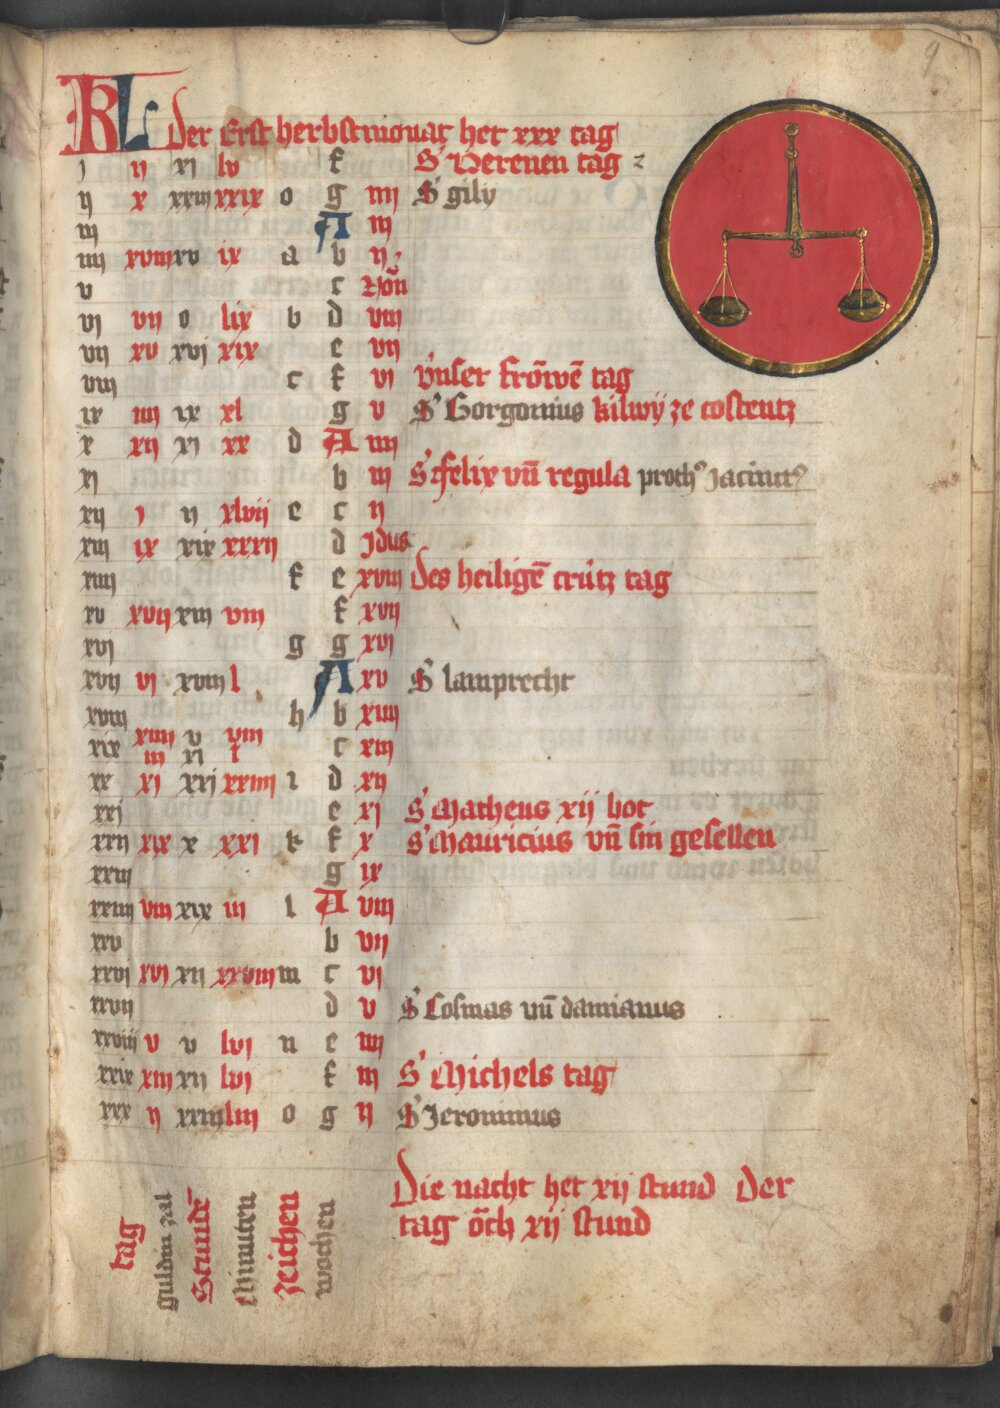 9
KL Der Erst herbstmonat het xxx tag
j ij xj lv f S' Verenen tag
ij x xxiij xxix o g iiij S' gily
iij A iij
iiij xviij xv ix a b ij
v c Non
vj vij o lix b d viij
vij xv xvj xix e vij
viij c f vj vnser frowē tag
ix iiij ix xl g v S' Gorgonius kilwy ze costentz
x xij xj xx d A iiij
xj b iij S' felix vn̄ regula proth9 Jacinct9
xij j ij xlvij e c ij
xiij ix xix xxxij d Jdus
xiiij f e xviij des heiligē crútz tag
xv xvij xiij viij f xvij
xvj g g xvj
xvij vj xviij l A xv S' lamprecht
xviij h b xiiij
xix xiiij v viij c xiij
iij xj x
xx xj xxj xxiiij i d xij
xxj e xj S' Matheus xij bot
xxij xix x xxj k f x S' Mauricius vn̄ sin gesellen
xxiij g ix
xxiiij viij xix iij l A viij
xxv b vij
xxvj xvj xij xxviij m c vj
xxvij d v S' Cosmas vn̄ damianus
xxviij v v lvj n e iiij
xxix xiij xij lvj f iij S' Michels tag
xxx ij xxiij liij o g ij S' Jeronimus
Die nacht het xij stund Der
tag och xij stund
tag
guldin zal
Stundē
Minuten
zeichen
wochen